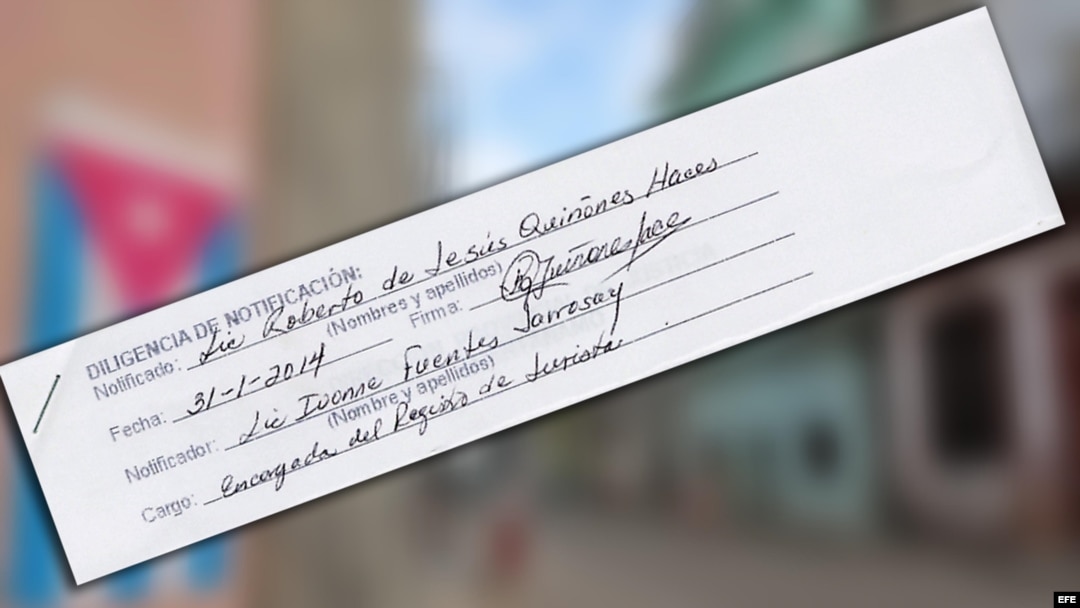 DILIGENCIA DE NOTIFICACIÓN:
Notificado: Lic Roberto de Jesús Quiñones Haces
(Nombres y apellidos)
Fecha: 31-1-2014 Firma: RQuiñoneshace
Notificador: Lic Ivonne Fuentes Jarrosay
(Nombre y apellidos)
Cargo: encargada del Registro de Jurista.
EFE